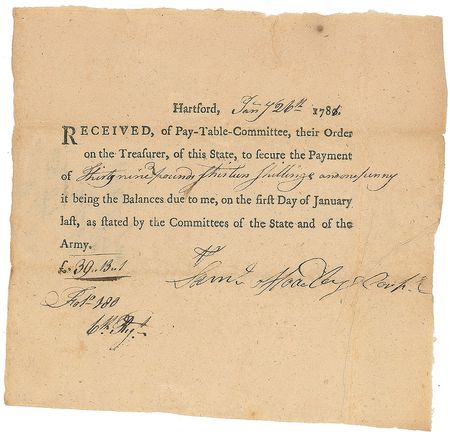 Hartford, Jany 26th 178
RECEIVED, of Pay-Table-Committee, their Order
on the Treasurer, of this State, to secure the Payment
of Thirty nine pounds thirteen Shillings and one penny
it being the Balances due to me, on the first Day of January
last, as stated by the Committees of the State and of the
Army.
£. 39..13..1
Saml
180
6th